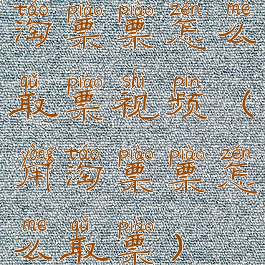 táo piào piào zěn me
淘票票怎么
qǔ piào shì pín
取票视频（
yòng táo piào piào zěn
用淘票票怎
me qǔ piào
么取票）